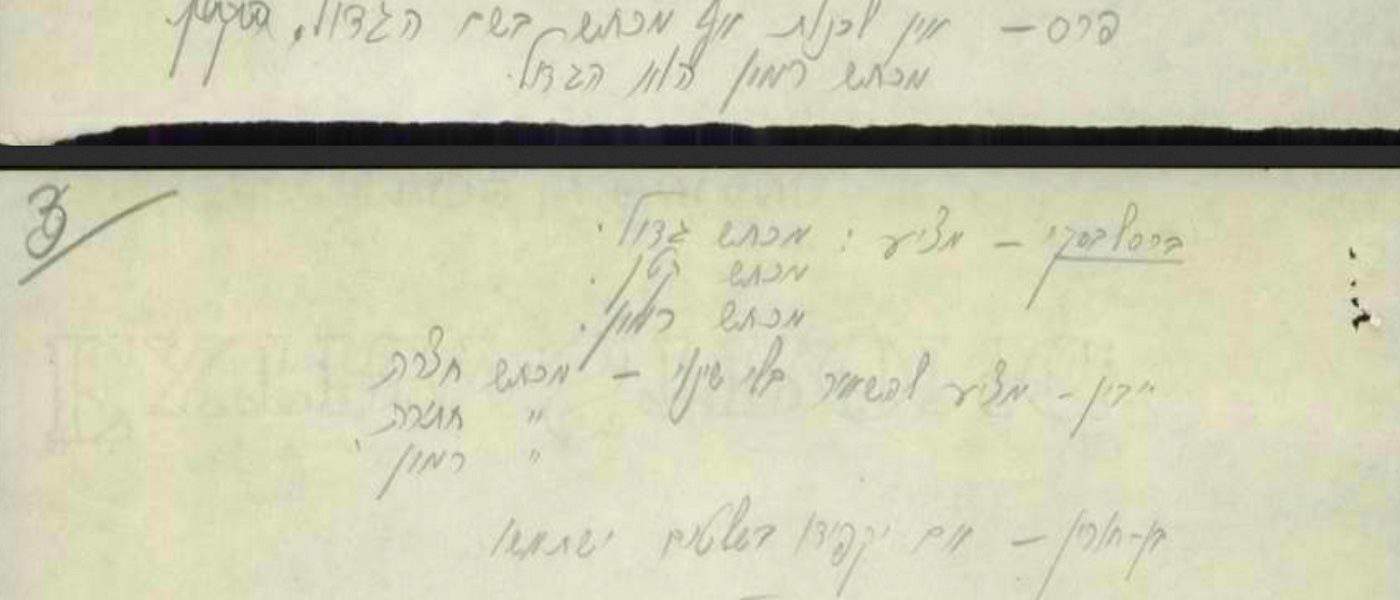 פרס – אין לכנות אף מכתש בשם הגדול, הקטן.
מכתש רמון הוא הגדול.
3
ברסלבסקי – מציע : מכתש גדול.
מכתש קטן.
מכתש רמון.
ידין – מציע להשאיר בלי שינוי – מכתש חצרה
" חתירה
" רמון
בן-חורין – אם יקפידו בשלטים ישתמשו